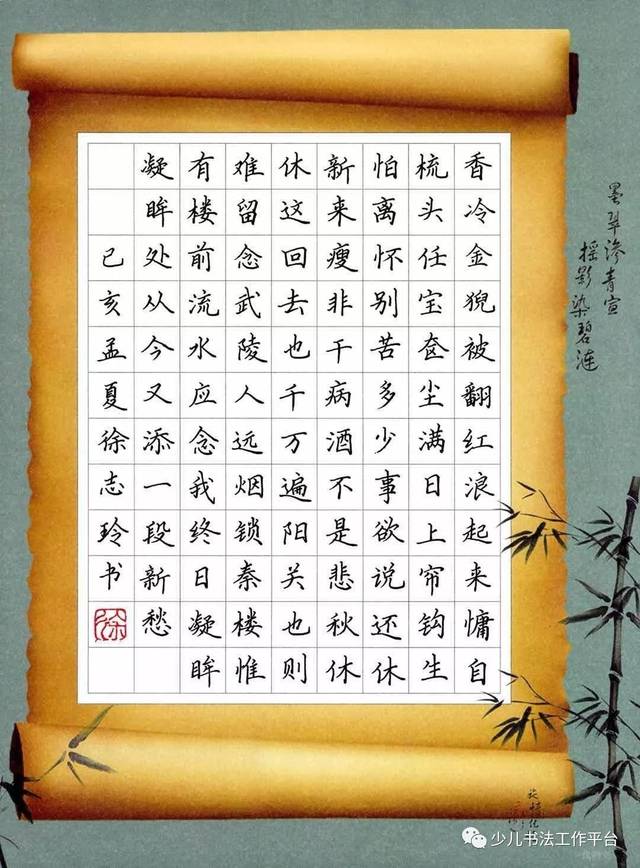 香冷金猊被翻红浪起来慵自
梳头任宝奁尘满日上帘钩生
怕离怀别苦多少事欲说还休
新来瘦非干病酒不是悲秋休
休这回去也千万遍阳关也则
难留念武陵人远烟锁秦楼惟
有楼前流水应念我终日凝眸
凝眸处从今又添一段新愁
己亥孟夏徐志玲书
徐
墨翠渗青宣
摇影染碧涟
少儿书法工作平台